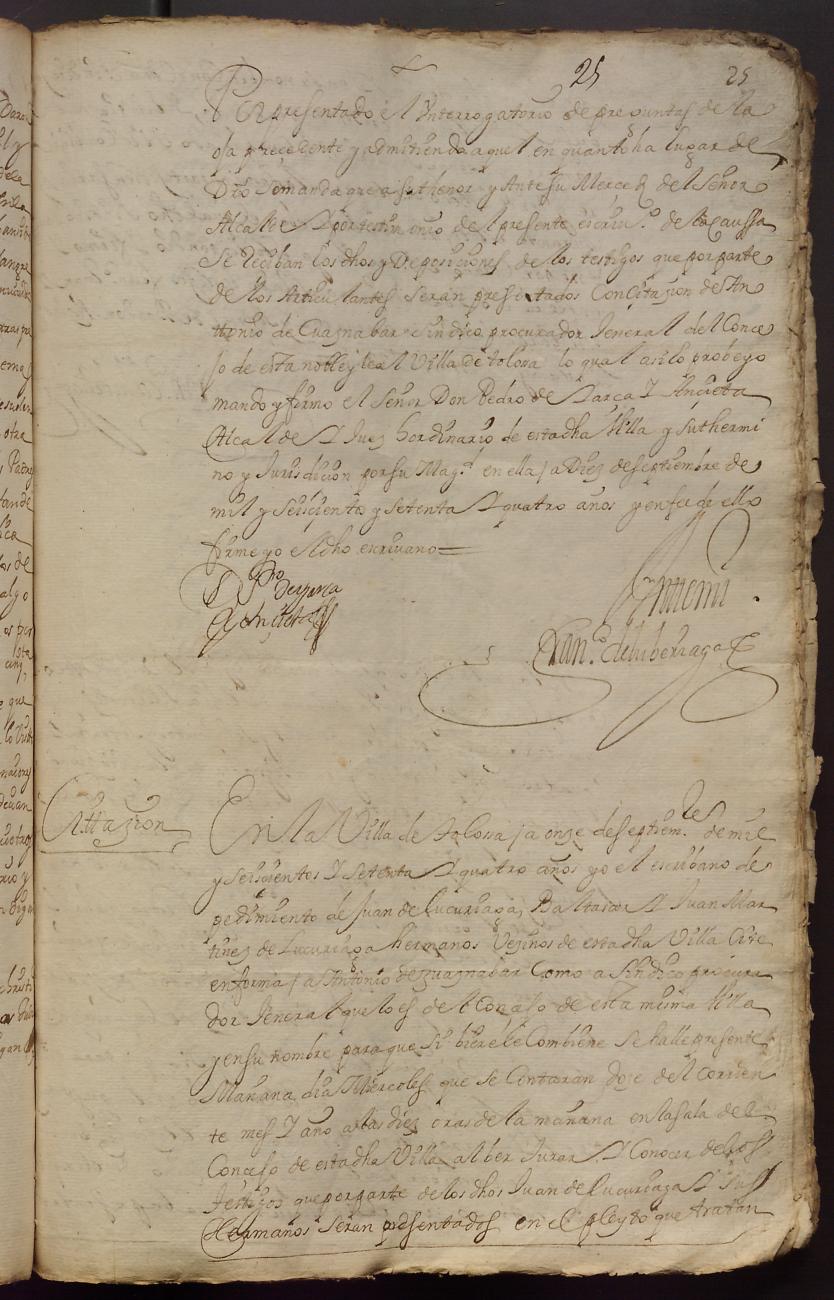 25 25
Por Presentado el Ynterrogatorio de preguntas de la
oja precedente y admitiendo aquel en quanto ha lugar de
Dro Se manda que a su thenor y Ante su Merced del Señor
Alcalde Y por testimonio del presente escriuº de la Caussa
Se reciban los dhos y Deposiciones de los testigos que por parte
de los Articulantes seran presentados Con Citazion de An
ttonio de Guaznabar Sindico procurador Jeneral del Conce
jo de esta noble y leal Villa de tolosa lo qual asi lo probeyo
mando y firmo el Señor Don Pedro de Yarca Y Ancieta
Alcalde Y Juez hordinario de esta dha Villa y su thermi
no y Jurisdicion por su Magd en ella / a Diez de septiembre de
mil y Seiscientos y Setenta Y quatro años y en fee de ello
firme yo el dho escriuano
D Pedro de Yarca
Y Ancieta
Ante mi
Franº de
Cittazion
En la Villa de Tolossa / a onze de Septiemre de mil
y Seiscientos Y Setenta Y quatro años yo el escribano de
pedimiento de Juan de Lucuriaga, Baltasar Y Juan Mar
tinez de Lucuriaga hermanos Vezinos de esta dha Villa Cite
en forma / a Antonio de guaznabar Como a Sindico procura
dor Jeneral que lo es del Conzejo de esta misma Villa
y en su nombre para que Si biere le Combiene Se halle presente
Mañana dia Miercoles que se Contaran doze del Corrien
te mes Y año a las diez oras de la mañana en la sala del
Concejo de esta dha Villa al ber Jurar Y Conocer de los
Testigos que por parte de los dhos Juan de Lucuriaga Y Sus
Hermanos Seran presentados en el pleyto que tratan